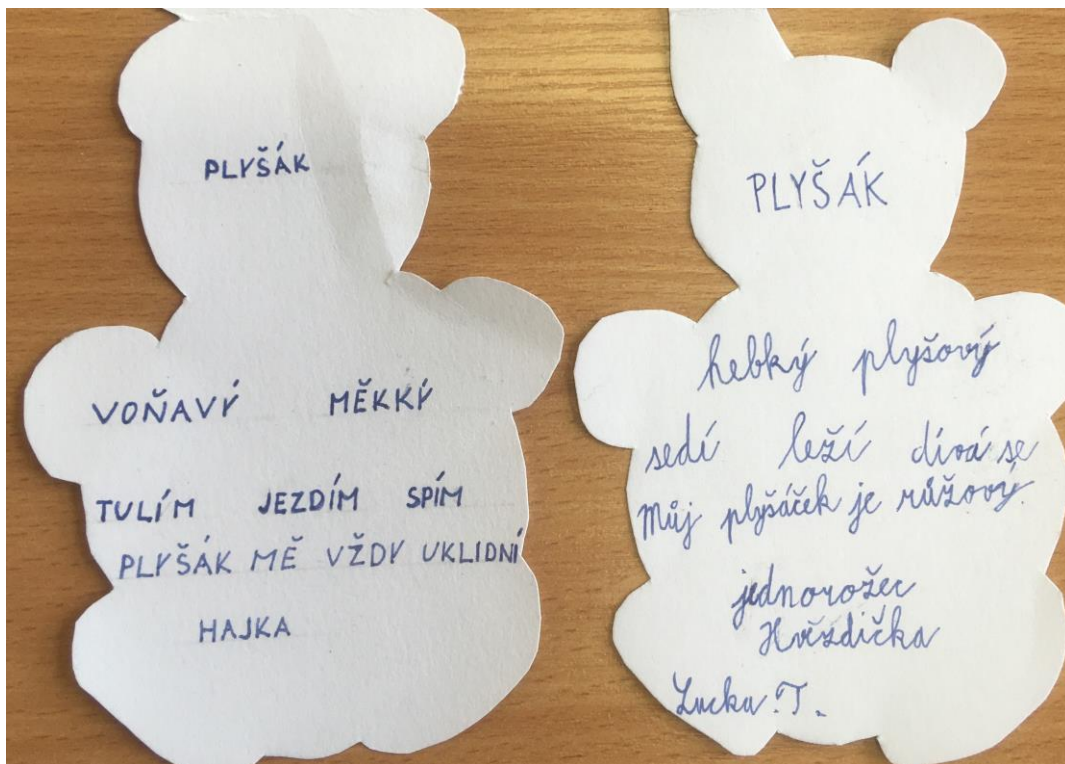 PLYŠÁK
VOŇAVÝ MĚKKÝ
TULÍM JEZDÍM SPÍM
PLYŠÁK MĚ VŽDY UKLIDNÍ
HAJKA
PLYŠÁK
hebký plyšový
sedí leží dívá se
Můj plyšáček je růžový.
jednorožec
Hvězdička
Lucka T.